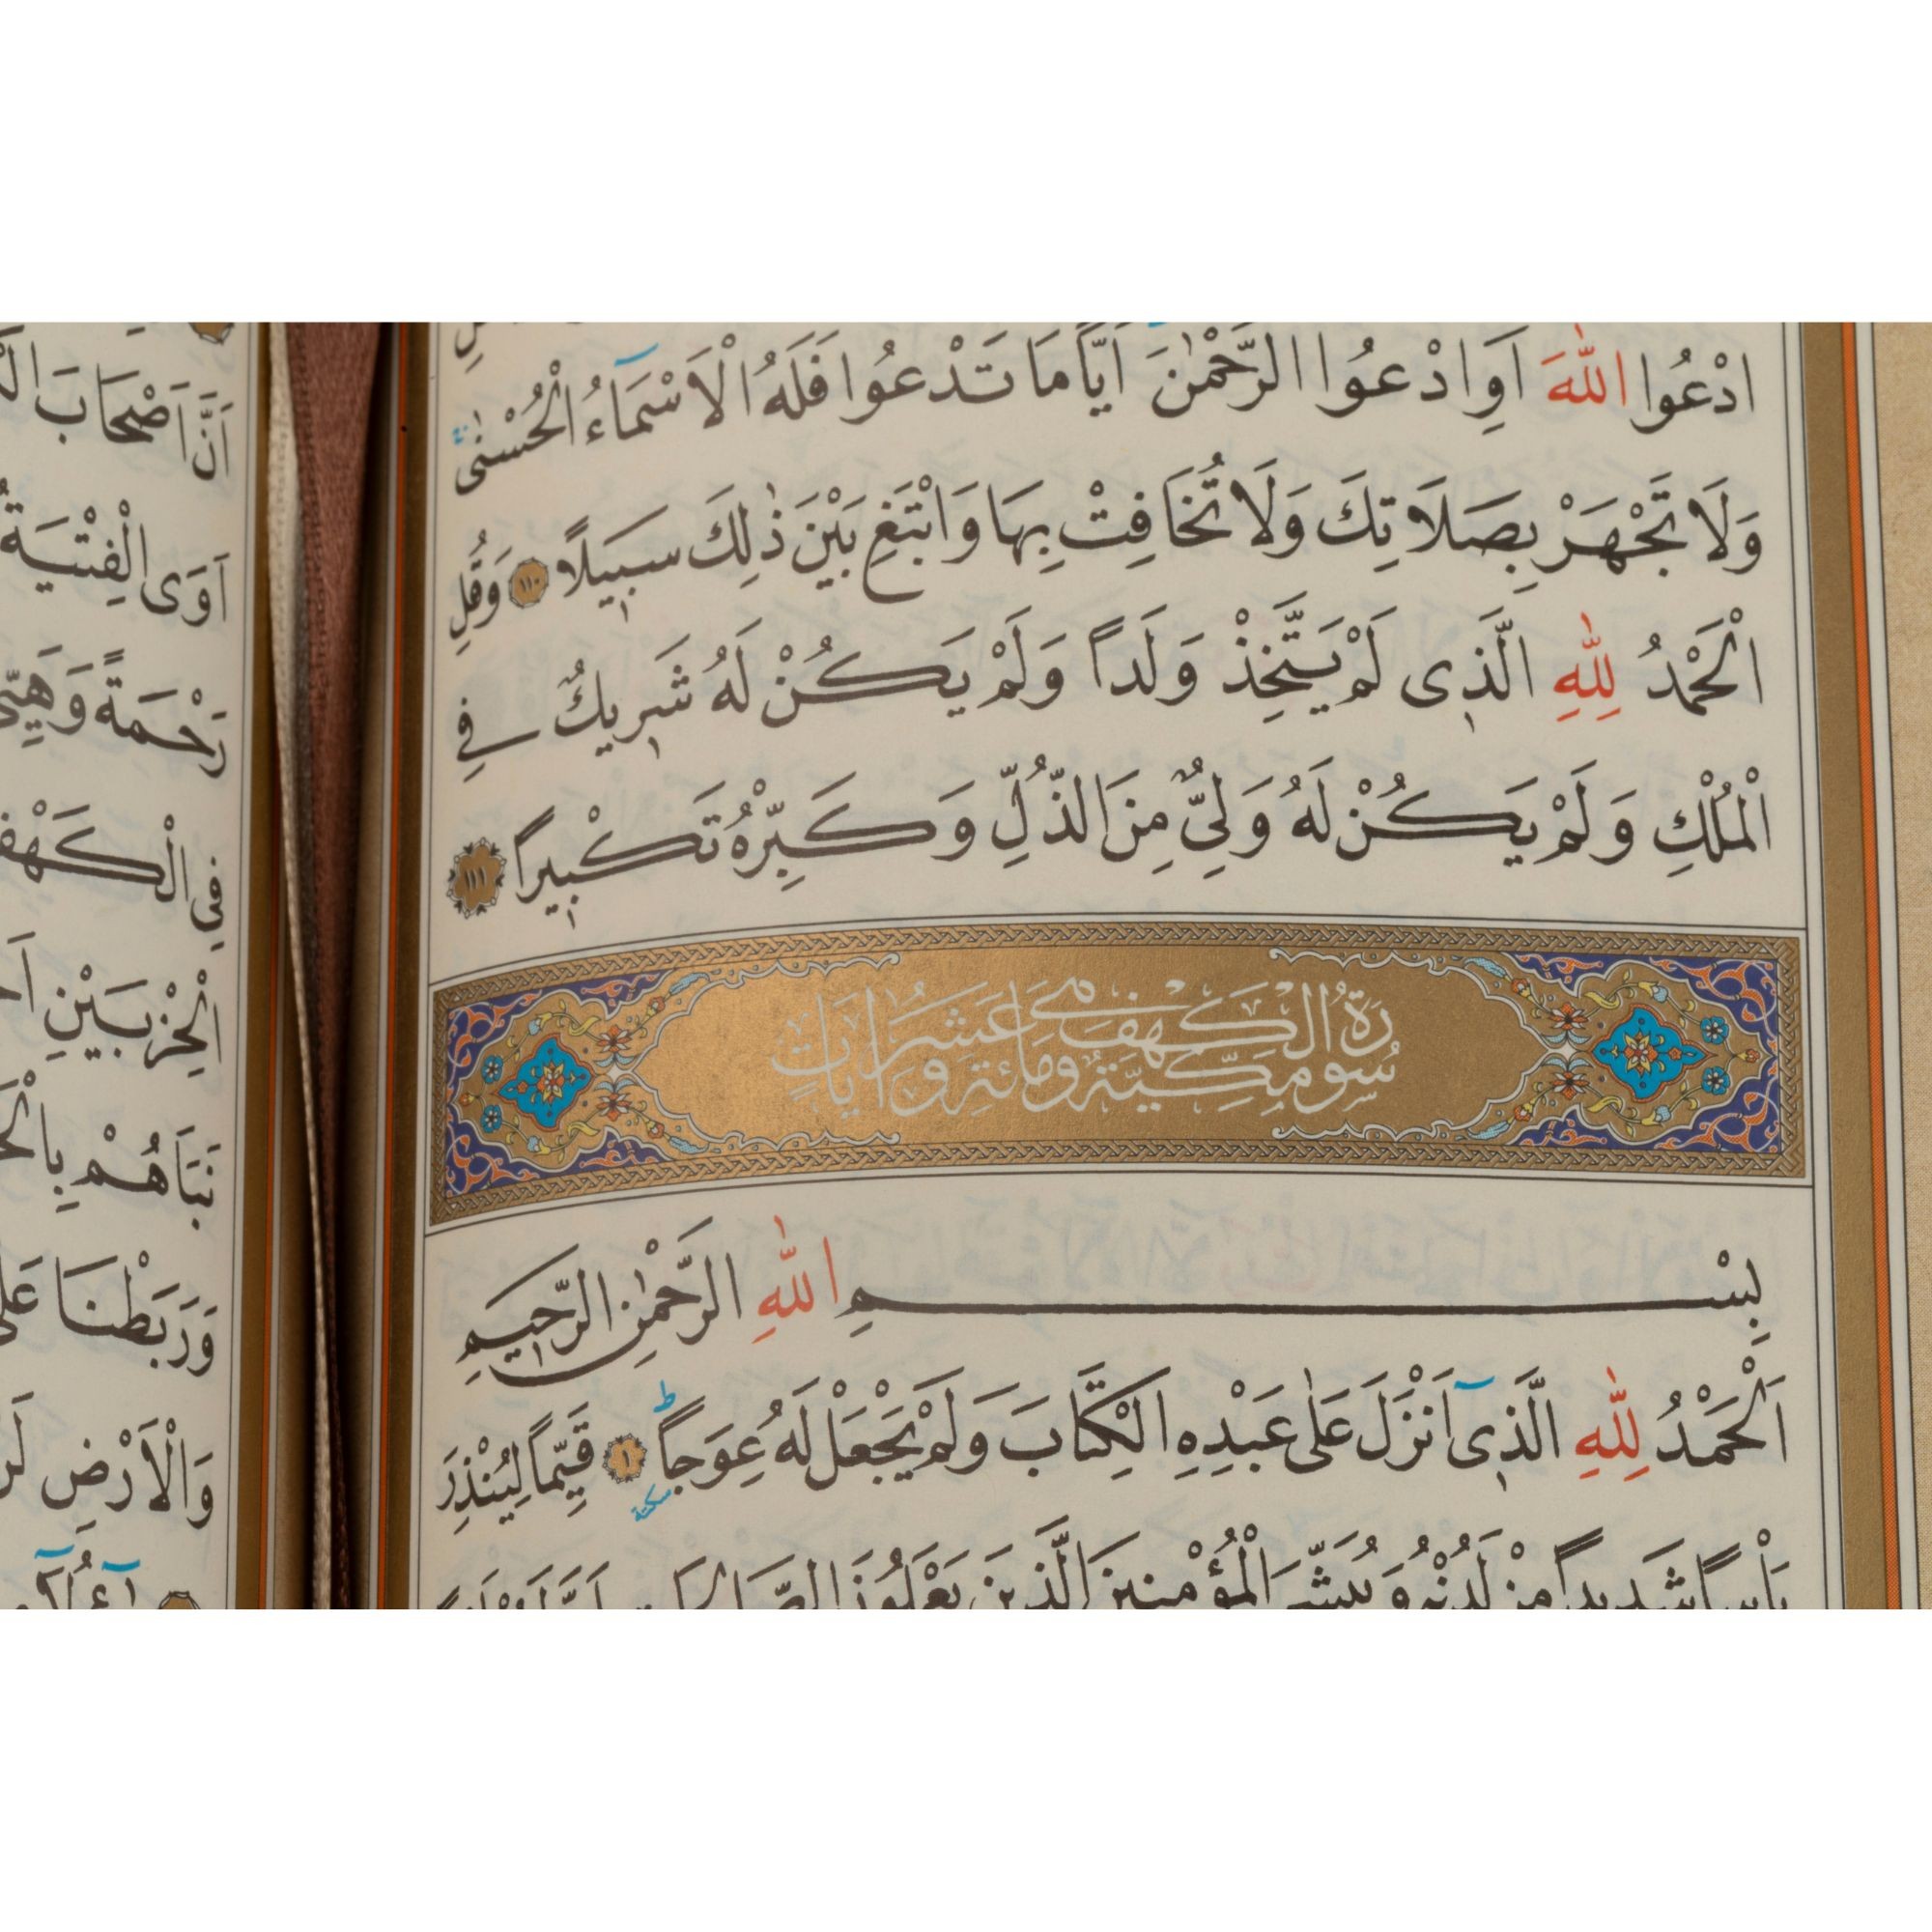 ادْعُوا اللّٰهَ اَوِ ادْعُوا الرَّحْمٰنَ اَيًّا مَا تَدْعُوا فَلَهُ الْاَسْمَآءُ الْحُسْنٰى
وَلَا تَجْهَرْ بِصَلَاتِكَ وَلَا تُخَافِتْ بِهَا وَابْتَغِ بَيْنَ ذٰلِكَ سَبيلًا ١١٠ وَقُلِ
الْحَمْدُ لِلّٰهِ الَّذى لَمْ يَتَّخِذْ وَلَداً وَلَمْ يَكُنْ لَهُ شَريكٌ فِى
الْمُلْكِ وَلَمْ يَكُنْ لَهُ وَلِىٌّ مِنَ الذُّلِّ وَكَبِّرْهُ تَكْبيراً ١١١
سُورَةُ الْكَهْفِ مَكِّيَّةٌ وَهِىَ مِائَةٌ وَعَشَرُ اٰيَاتٍ
بِسْمِ اللّٰهِ الرَّحْمٰنِ الرَّحيمِ
اَلْحَمْدُ لِلّٰهِ الَّذى اَنْزَلَ عَلٰى عَبْدِهِ الْكِتَابَ وَلَمْ يَجْعَلْ لَهُ عِوَجاً ط سكتة ١ قَيِّماً لِيُنْذِرَ
بَاْساً شَديداً مِنْ لَدُنْهُ وَيُبَشِّرَ الْمُؤْمِنينَ الَّذينَ يَعْمَلُونَ
اَنَّ اَصْحَابَ
اَوَى الْفِتْيَةُ
رَحْمَةً وَهَيِّئْ
فِى الْكَهْفِ
الْحِزْبَيْنِ
نَبَاَهُمْ بِالْحَقِّ
وَرَبَطْنَا عَلٰى
وَالْاَرْضِ